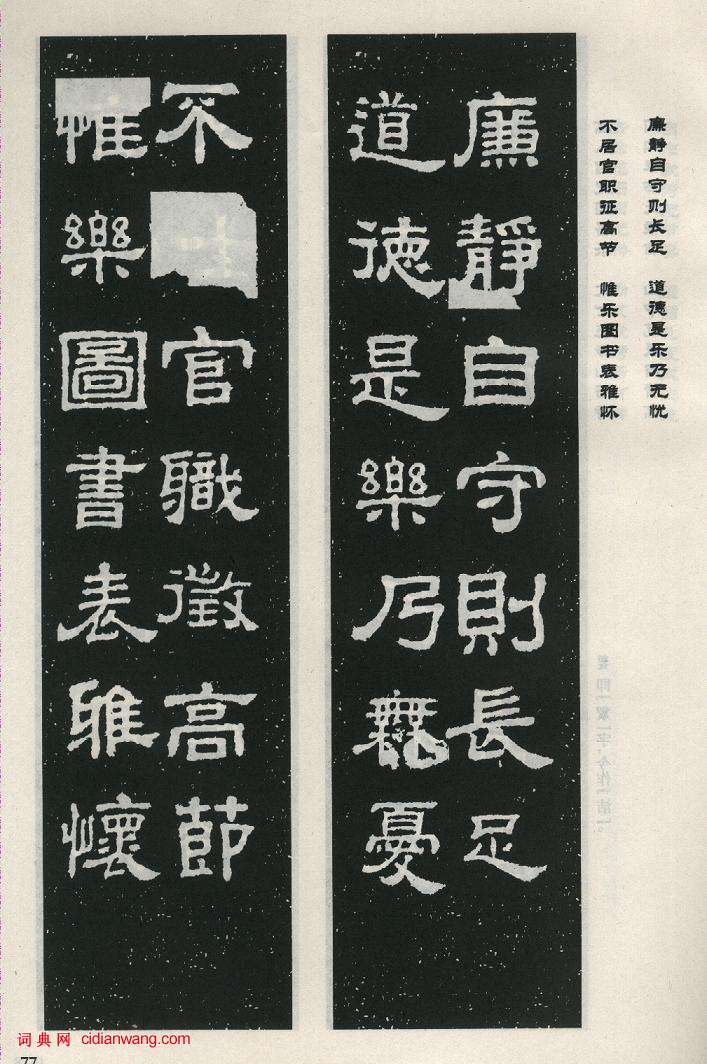 廉静自守则长足 道德是乐乃无忧
不居官职征高节 惟乐图书表雅怀
廉靜自守則長足
道德是樂乃無憂
不官職徵高節
惟樂圖書表雅懷
词典网 cidianwang.com
77